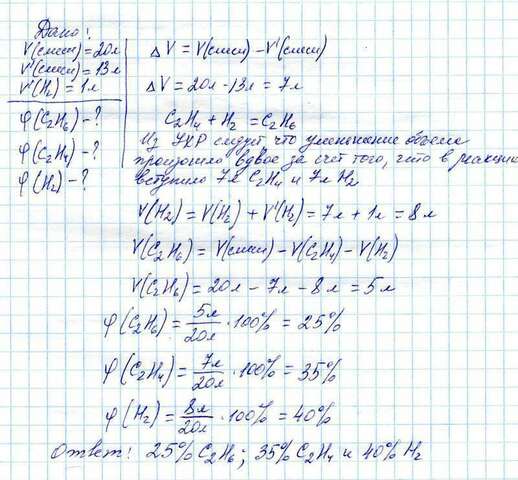 Дано:
V(смеси) = 20л
V'(смеси) = 13л
V'(H₂) = 1л
φ(C₂H₆) - ?
φ(C₂H₄) - ?
φ(H₂) - ?
ΔV = V(смеси) - V'(смеси)
ΔV = 20л - 13л = 7л
C₂H₄ + H₂ = C₂H₆
Из УХР следует что уменьшение объема
произошло вдвое за счет того, что в реакцию
вступило 7л C₂H₄ и 7л H₂
V(H₂) = V(H₂) + V'(H₂) = 7л + 1л = 8л
V(C₂H₆) = V(смеси) - V(C₂H₄) - V(H₂)
V(C₂H₆) = 20л - 7л - 8л = 5л
φ(C₂H₆) = 5л/20л · 100% = 25%
φ(C₂H₄) = 7л/20л · 100% = 35%
φ(H₂) = 8л/20л · 100% = 40%
Ответ: 25% C₂H₆; 35% C₂H₄ и 40% H₂